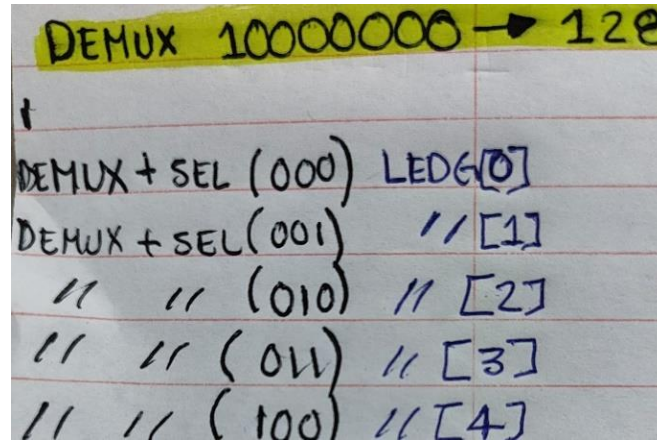 DEMUX 10000000 → 128
DEMUX + SEL (000) LEDG[0]
DEMUX + SEL (001) // [1]
// // (010) // [2]
// // (011) // [3]
// // (100) // [4]